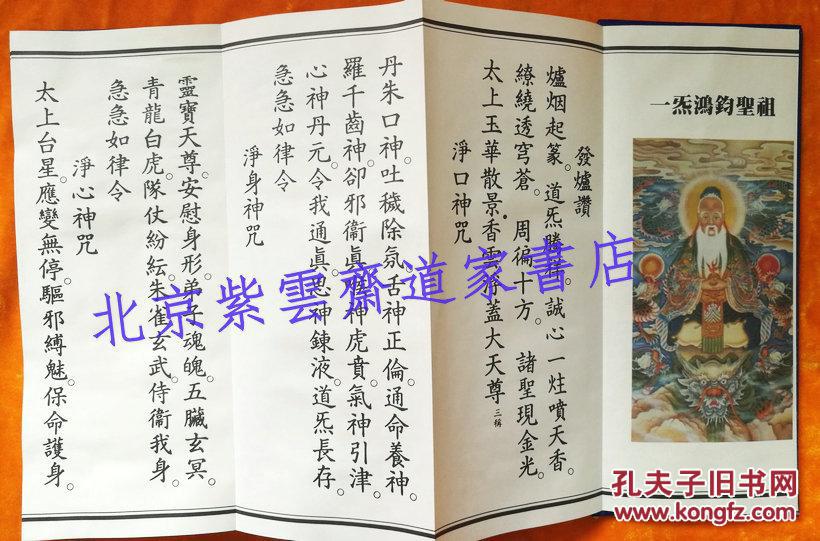 一炁鴻鈞聖祖
發爐讚
爐烟起篆。道炁勝 。誠心一炷噴天香。
繚繞透穹蒼。周徧十方。諸聖現金光。
太上玉華散景。香雲 蓋大天尊 三稱
淨口神咒
丹朱口神。吐穢除氛。舌神正倫。通命養神。
羅千齒神。卻邪衞眞。 神虎賁。氣神引津。
心神丹元。令我通眞。思神鍊液。道炁長存。
急急如律令
淨身神咒
靈寶天尊。安慰身形。弟子魂魄。五臟玄冥。
青龍白虎。隊仗紛紜。朱雀玄武。侍衞我身。
急急如律令
淨心神咒
太上台星。應變無停。驅邪縛魅。保命護身。
北京紫雲齋道家書店
孔夫子旧书网
www.kongfz.com